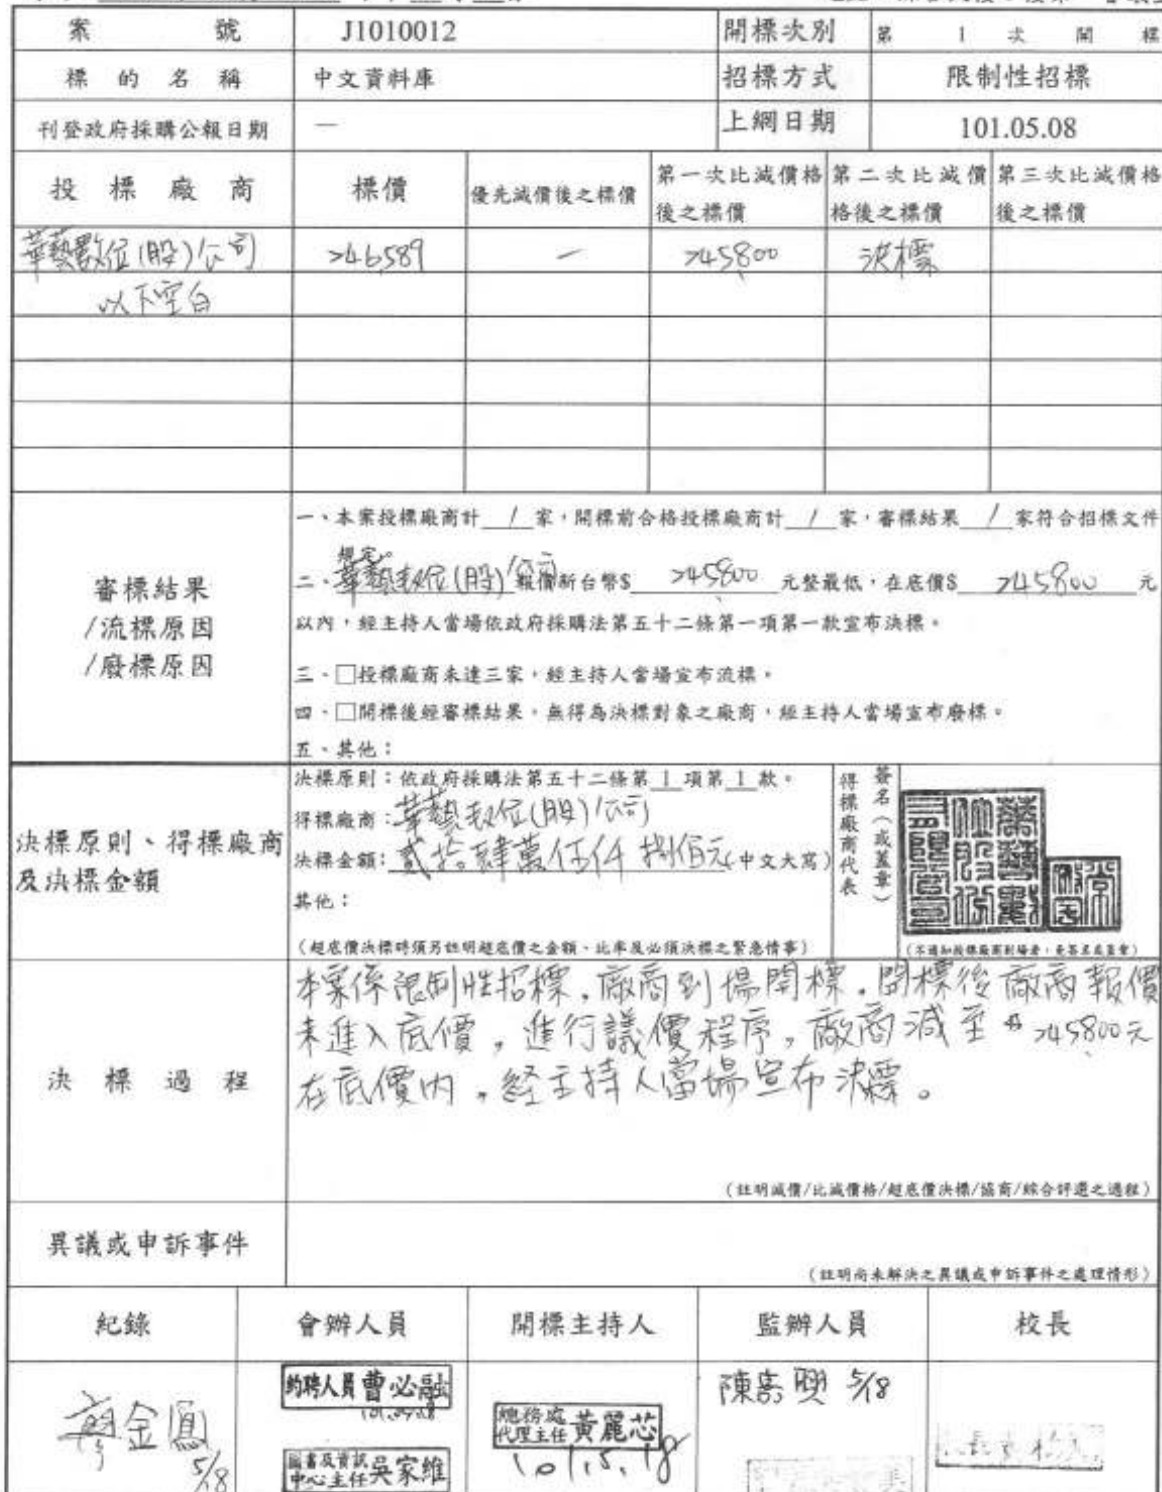 案號 J1010012 開標次別 第 1 次開標
標的名稱 中文資料庫 招標方式 限制性招標
刊登政府採購公報日期 — 上網日期 101.05.08
投標廠商 標價 優先減價後之標價 第一次比減價格後之標價 第二次比減價格後之標價 第三次比減價格後之標價
華藝數位(股)公司 246,589 — 245,800 決標
以下空白
審標結果
/流標原因
/廢標原因
一、本案投標廠商計 1 家，開標前合格投標廠商計 1 家，審標結果 1 家符合招標文件
規定。
二、華藝數位(股)公司報價新台幣$ 245,800 元整最低，在底價$ 245,800 元
以內，經主持人當場依政府採購法第五十二條第一項第一款宣布決標。
三、□投標廠商未達三家，經主持人當場宣布流標。
四、□開標後經審標結果，無得為決標對象之廠商，經主持人當場宣布廢標。
五、其他：
決標原則、得標廠商
及決標金額
決標原則：依政府採購法第五十二條第 1 項第 1 款。
得標廠商：華藝數位(股)公司
決標金額：貳拾肆萬伍仟捌佰元(中文大寫)
其他：
(超底價決標時須另註明超底價之金額、比率及必須決標之緊急情事)
得標廠商代表
簽名（或蓋章）
(不通知投標廠商到場者，免簽名或蓋章)
決標過程
本案係限制性招標，廠商到場開標，開標後廠商報價
未進入底價，進行議價程序，廠商減至$245,800元
在底價內，經主持人當場宣布決標。
(註明減價/比減價格/超底價決標/協商/綜合評選之過程)
異議或申訴事件
(註明尚未解決之異議或申訴事件之處理情形)
紀錄 會辦人員 開標主持人 監辦人員 校長
廖金鳳 5/18
約聘人員 曹必融
101.05.18
圖書及資訊中心主任 吳家維
總務處代理主任 黃麗芯
101.5.18
5/18